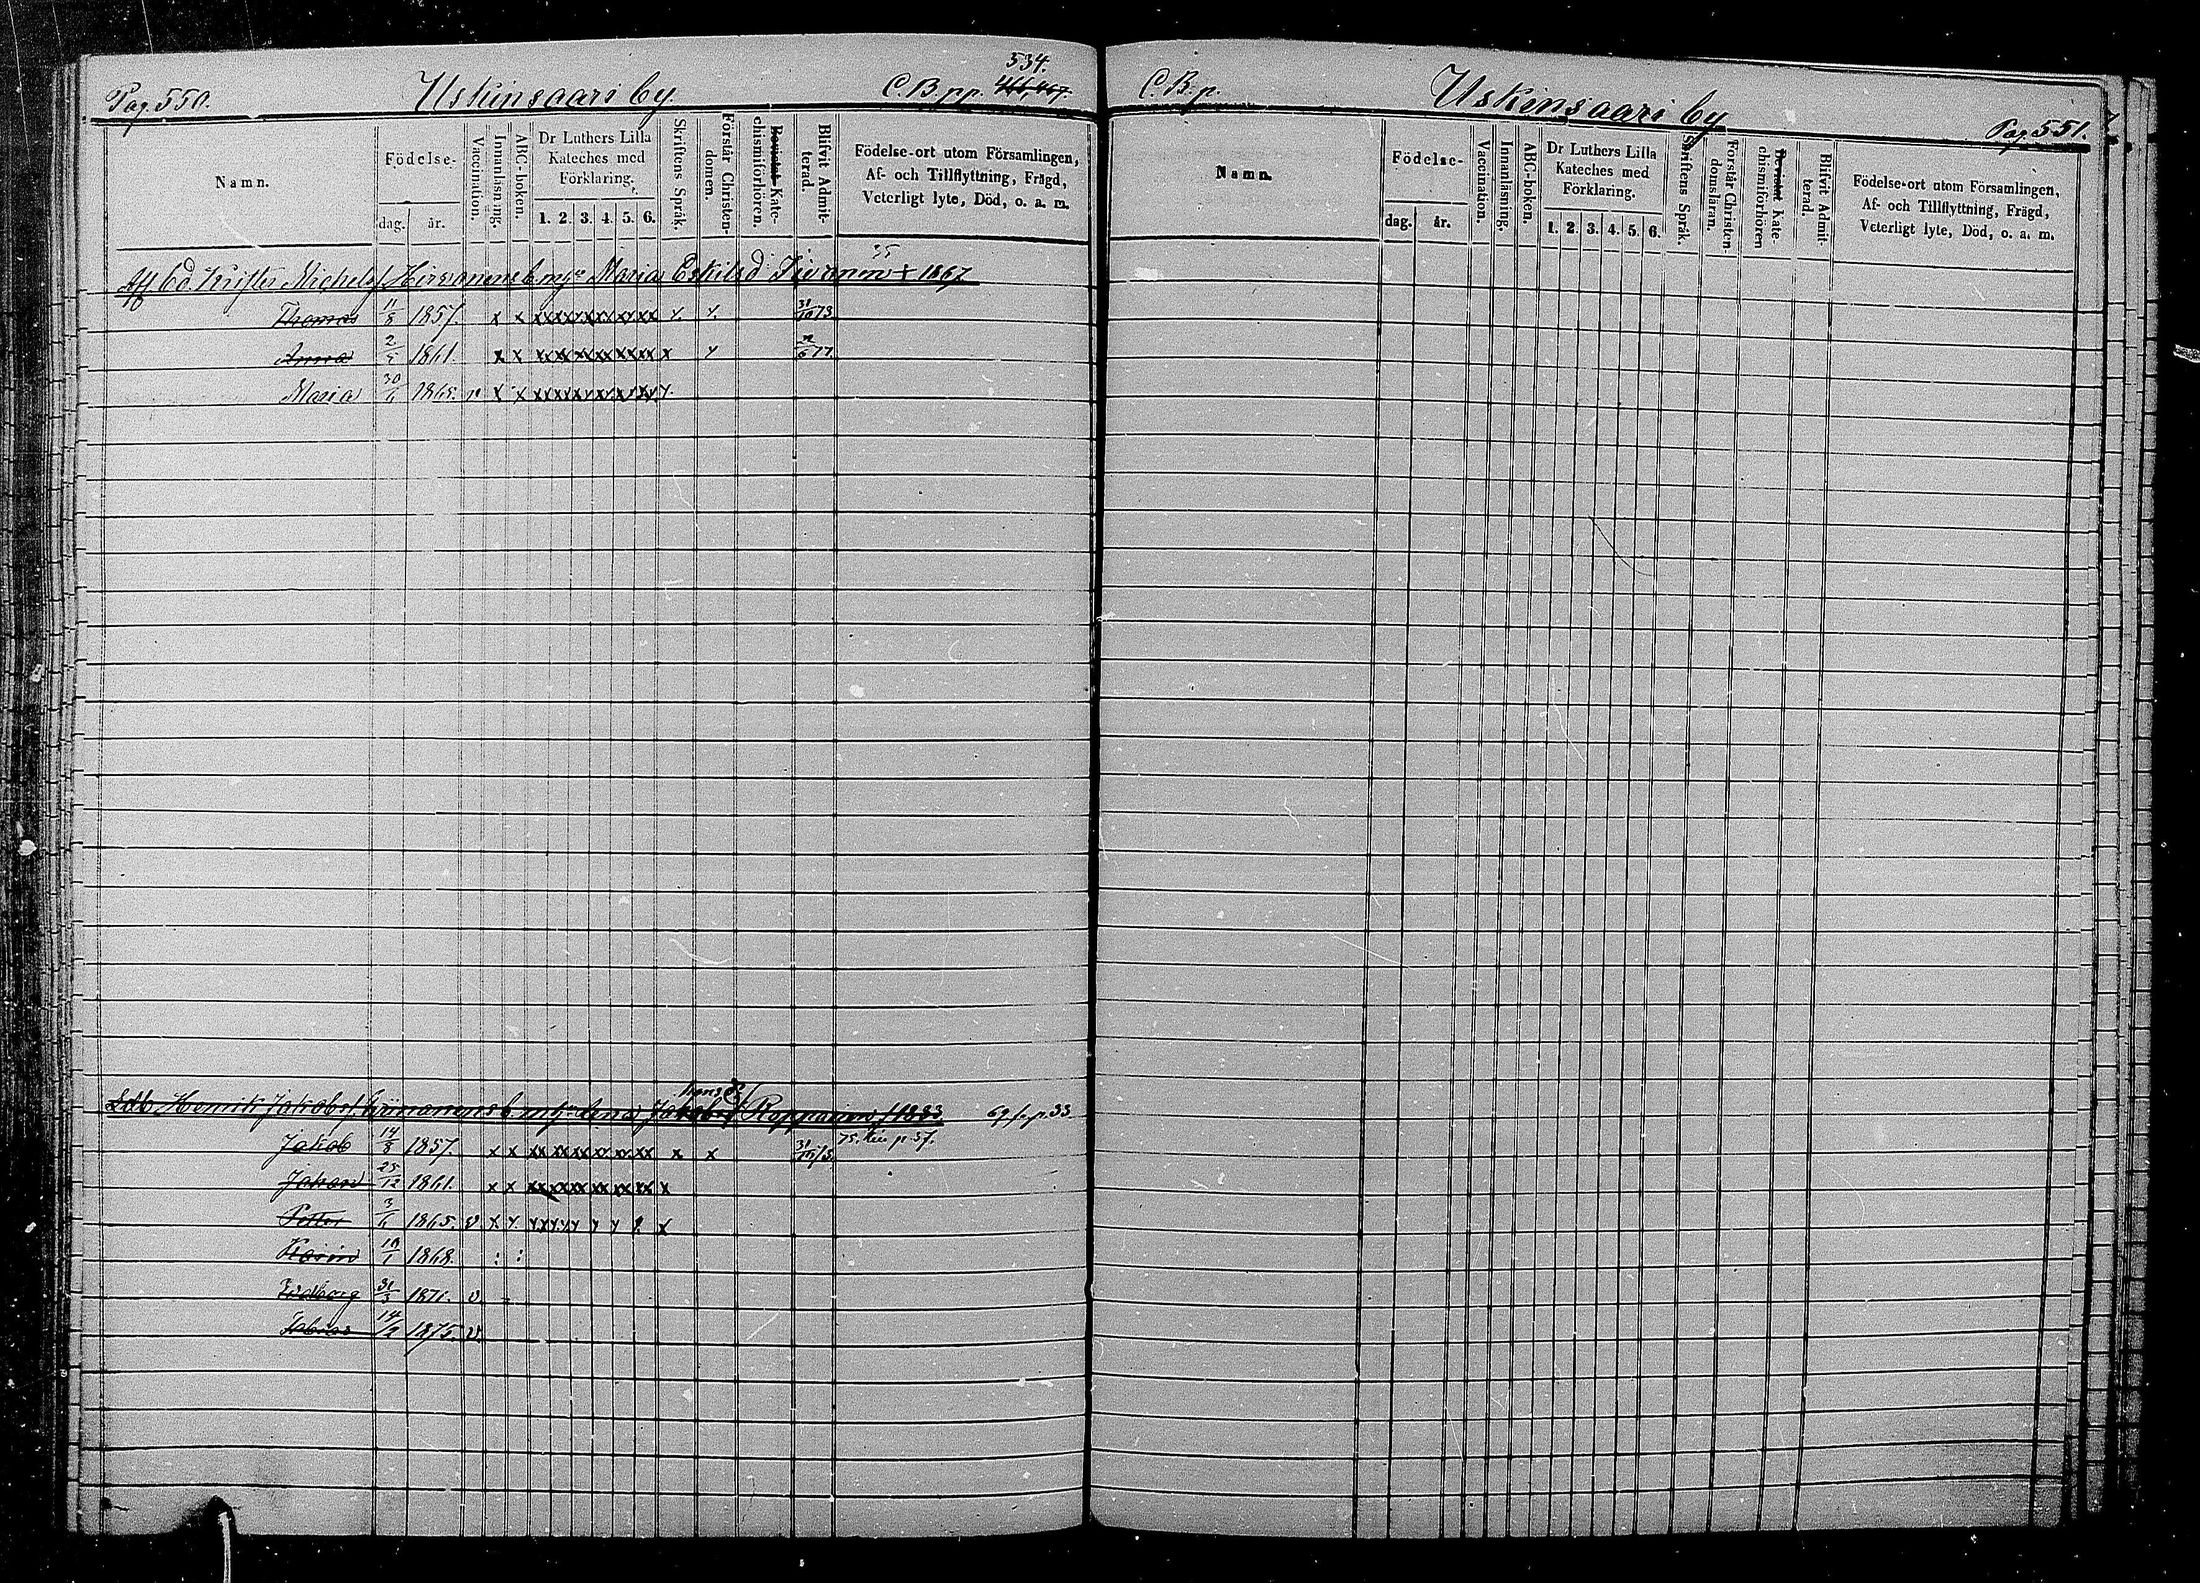 Pag. 550. Uskinsaari by. C.B. pp. 466, 467. 534.
Namn. Födelse- dag. år. Vaccination. Innanläsning. ABC-boken. Dr Luthers Lilla Kateches med Förklaring. 1. 2. 3. 4. 5. 6. Skriftens Språk. Förstår Christendomen. Bevistat Katechismiförhören. Blifvit Admitterad. Födelse-ort utom Församlingen, Af- och Tillflyttning, Frägd, Veterligt lyte, Död, o. a. m.
35
Krister Michelsf Maria Eskilsd 1867.
Thomas 11/8 1857. x x xx xx xx xx xx xx x. x. 31/10 73.
Anna 2/5 1861. x x xx xx xx xx xx xx x x
Maria 30/6 1865. v x x xx xx xx xx xx xx x.
Henrik Jakobsf Anna Jakobsd Rapparen † 1883 69 p. 33.
Jakob 14/8 1857. x x xx xx xx xx xx xx x x 31/10 73. 75. p 57.
Johan 25/12 1861. x x xx xx xx xx xx xx x
Petter 3/6 1865. v x. x. x
Karin 10/1 1868. : :
Walborg 31/3 1871. v.
1875. v.
C.B. p. Uskinsaari by Pag. 551.
Namn. Födelse- dag. år. Vaccination. Innanläsning. ABC-boken. Dr Luthers Lilla Kateches med Förklaring. 1. 2. 3. 4. 5. 6. Skriftens Språk. Förstår Christendomsläran. Bevistat Katechismiförhören Blifvit Admitterad. Födelse-ort utom Församlingen, Af- och Tillflyttning, Frägd, Veterligt lyte, Död, o. a. m.